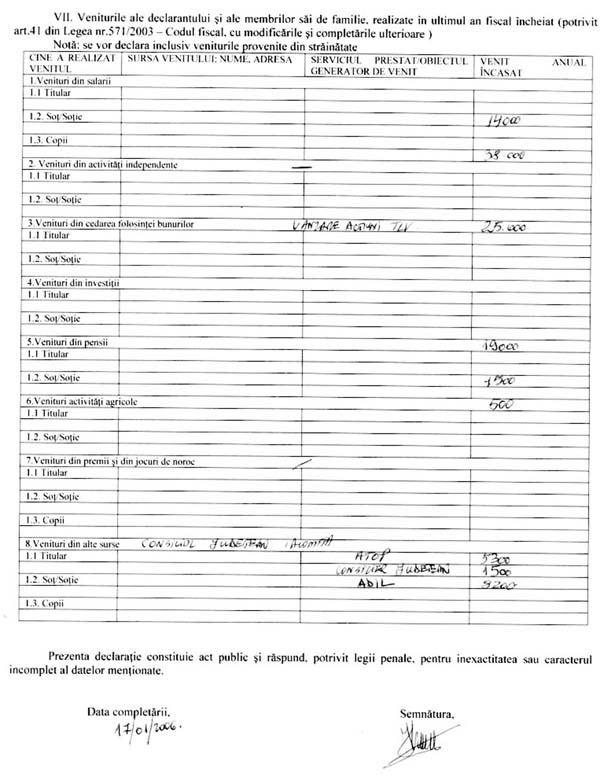 VII. Veniturile ale declarantului şi ale membrilor săi de familie, realizate in ultimul an fiscal încheiat (potrivit
art.41 din Legea nr.571/2003 – Codul fiscal, cu modificările şi completările ulterioare )
Notă: se vor declara inclusiv veniturile provenite din străinătate
CINE A REALIZAT VENITUL SURSA VENITULUI: NUME, ADRESA SERVICIUL PRESTAT/OBIECTUL GENERATOR DE VENIT VENIT ANUAL ÎNCASAT
1.Venituri din salarii
1.1 Titular
1.2. Soţ/Soţie 14000
1.3. Copii
38 000
2. Venituri din activităţi independente —
1.1 Titular
1.2. Soţ/Soţie
3.Venituri din cedarea folosinţei bunurilor VANZARE ACTIUNI TLV 25.000
1.1 Titular
1.2. Soţ/Soţie
4.Venituri din investiţii
1.1 Titular
1.2. Soţ/Soţie
5.Venituri din pensii 19000
1.1 Titular
1.2. Soţ/Soţie 1500
6.Venituri activităţi agricole 500
1.1 Titular
1.2. Soţ/Soţie
7.Venituri din premii şi din jocuri de noroc
1.1 Titular
1.2. Soţ/Soţie
1.3. Copii
8.Venituri din alte surse CONSILIUL JUDETEAN IALOMITA
1.1 Titular ATOP 5300
CONSILIER JUDETEAN 1500
1.2. Soţ/Soţie ADIL 9200
1.3. Copii
Prezenta declaraţie constituie act public şi răspund, potrivit legii penale, pentru inexactitatea sau caracterul
incomplet al datelor menţionate.
Data completării, Semnătura,
17/01/2006.